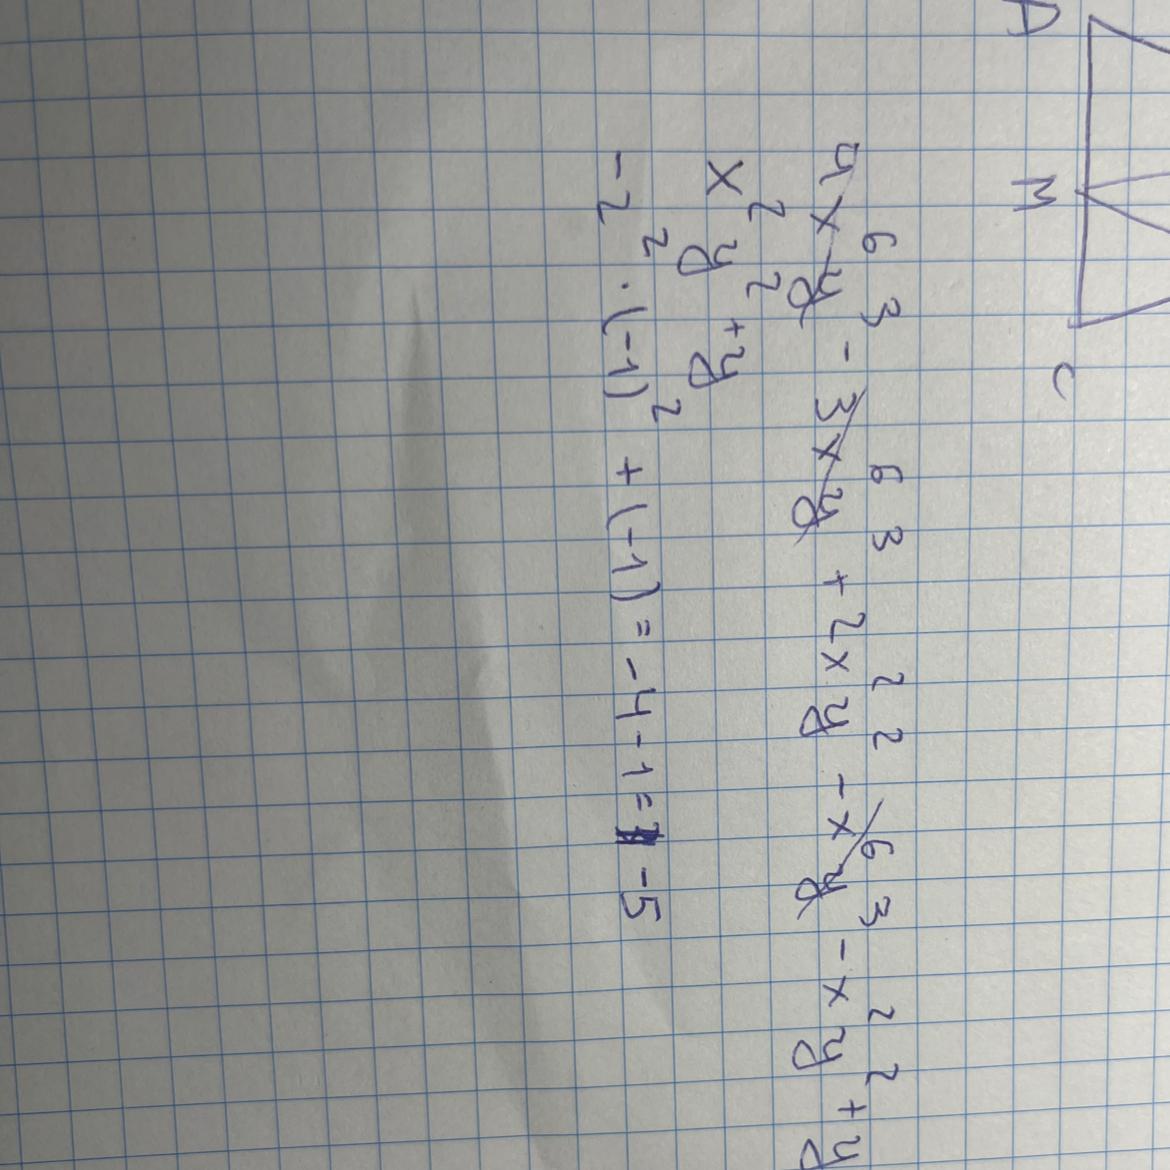 A M C
4x⁶y³ - 3x⁶y³ + 2x²y² - x⁶y³ - x²y² + y
x²y² + y
-2² · (-1)² + (-1) = -4 - 1 = -5